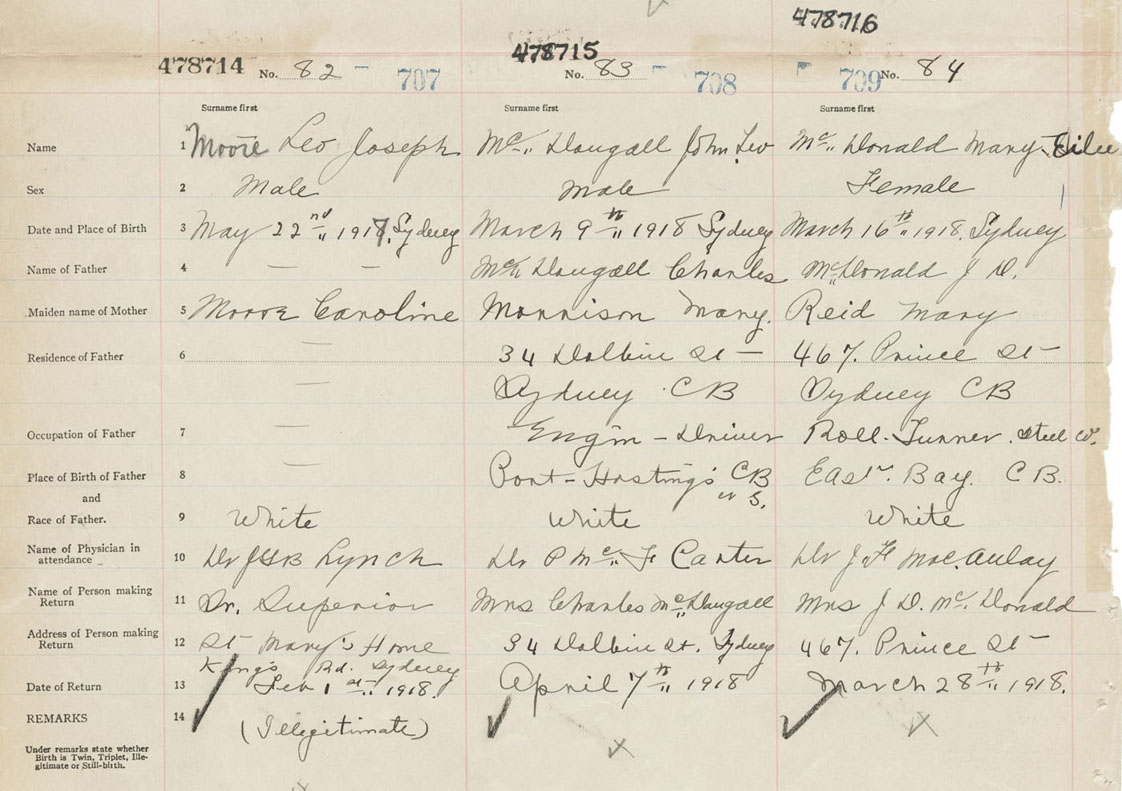 478716
478714 No. 82 707 478715 No. 83 708 709 No. 84
Surname first Surname first Surname first
Name 1 Moore Leo Joseph Mc Dougall John Leo Mc Donald Mary Eilee
Sex 2 Male Male Female
Date and Place of Birth 3 May 22nd 1917, Sydney March 9th 1918 Sydney March 16th 1918. Sydney
Name of Father 4 — — Mc Dougall Charles McDonald J D.
Maiden name of Mother 5 Moore Caroline Morrison Mary. Reid Mary
Residence of Father 6 — 34 Dolbin St — 467. Prince St —
— Sydney CB Sydney CB
Occupation of Father 7 — Engin - Driver Roll. Turner. Steel Co.
Place of Birth of Father 8 — Port - Hastings CB East. Bay. CB.
and
Race of Father. 9 White White White
Name of Physician in
attendance 10 Dr JGB Lynch Dr P Mc F Carter Dr J F MacAulay
Name of Person making
Return 11 Sr. Superior Mrs Charles McDougall Mrs J D. Mc Donald
Address of Person making
Return 12 St Mary's Home 34 Dolbin St. Sydney 467. Prince St —
King's Rd. Sydney
Date of Return 13 Feb 1st 1918. April 7th 1918 March 28th 1918.
REMARKS 14 (Illegitimate)
Under remarks state whether
Birth is Twin, Triplet, Ille-
gitimate or Still-birth.